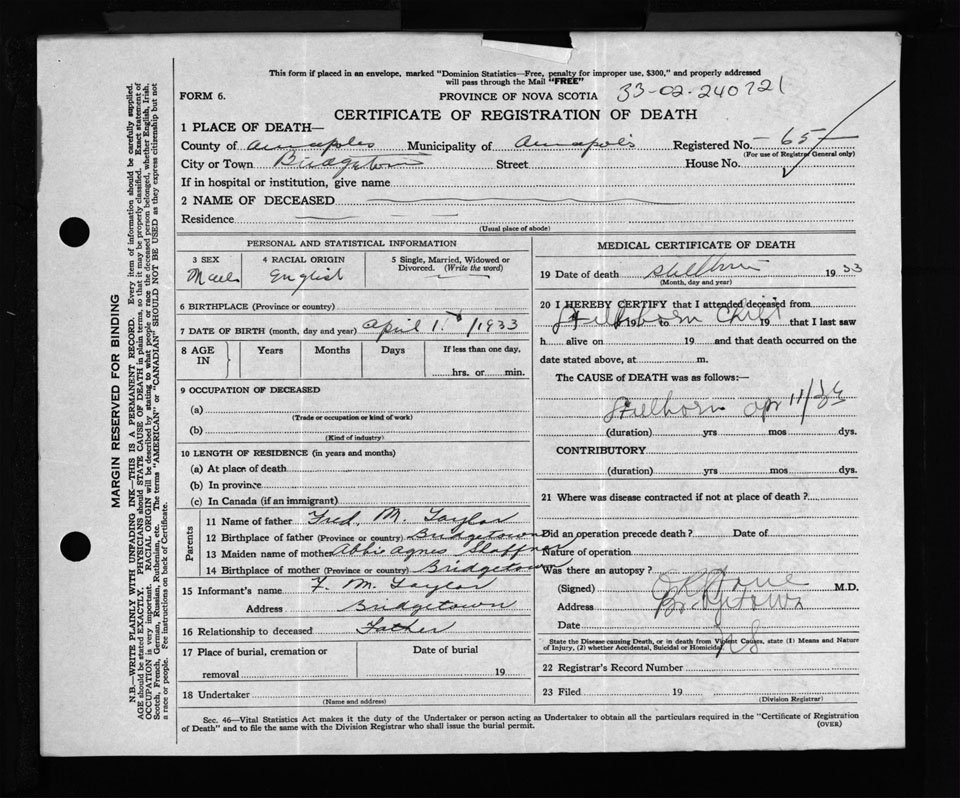 This form if placed in an envelope, marked "Dominion Statistics—Free, penalty for improper use, $300," and properly addressed
will pass through the Mail "FREE"
FORM 6.
PROVINCE OF NOVA SCOTIA 33-02-240721
CERTIFICATE OF REGISTRATION OF DEATH
1 PLACE OF DEATH—
County of Annapolis Municipality of Annapolis Registered No. 65
(For use of Registrar General only)
City or Town Bridgetown Street House No.
If in hospital or institution, give name
2 NAME OF DECEASED
Residence
(Usual place of abode)
PERSONAL AND STATISTICAL INFORMATION
3 SEX 4 RACIAL ORIGIN 5 Single, Married, Widowed or
Divorced. (Write the word)
Male English
6 BIRTHPLACE (Province or country)
7 DATE OF BIRTH (month, day and year) April 1933
8 AGE IN Years Months Days If less than one day,
hrs. or min.
9 OCCUPATION OF DECEASED
(a)
(Trade or occupation or kind of work)
(b)
(Kind of industry)
10 LENGTH OF RESIDENCE (in years and months)
(a) At place of death
(b) In province
(c) In Canada (if an immigrant)
Parents
11 Name of father Fred. M. Taylor
12 Birthplace of father (Province or country) Bridgetown
13 Maiden name of mother Abbie Agnes
14 Birthplace of mother (Province or country) Bridgetown
15 Informant's name F. M. Taylor
Address Bridgetown
16 Relationship to deceased Father
17 Place of burial, cremation or
removal
Date of burial
19
18 Undertaker
(Name and address)
MEDICAL CERTIFICATE OF DEATH
19 Date of death Stillborn 1933
(Month, day and year)
20 I HEREBY CERTIFY that I attended deceased from
Stillborn Child
19 to 19 that I last saw
h alive on 19 and that death occurred on the
date stated above, at m.
The CAUSE of DEATH was as follows:—
Stillborn Apr 11/33
(duration) yrs mos dys.
CONTRIBUTORY
(duration) yrs mos dys.
21 Where was disease contracted if not at place of death?
Did an operation precede death? Date of
Nature of operation
Was there an autopsy?
(Signed) M.D.
Address Bridgetown
Date NS
State the Disease causing Death, or in death from Violent Causes, state (1) Means and Nature
of Injury, (2) whether Accidental, Suicidal or Homicidal
22 Registrar's Record Number
23 Filed 19
(Division Registrar)
Sec. 46—Vital Statistics Act makes it the duty of the Undertaker or person acting as Undertaker to obtain all the particulars required in the "Certificate of Registration
of Death" and to file the same with the Division Registrar who shall issue the burial permit.
(OVER)
MARGIN RESERVED FOR BINDING
N.B.—WRITE PLAINLY WITH UNFADING INK—THIS IS A PERMANENT RECORD. Every item of information should be carefully supplied.
AGE should be stated EXACTLY. PHYSICIANS should STATE CAUSE OF DEATH in plain terms, so that it may be properly classified. Exact statement of
OCCUPATION is very important. RACIAL ORIGIN will be described by stating to what people or race the deceased person belonged, whether English, Irish,
Scotch, French, German, Russian, Ruthenian, etc. The terms "AMERICAN" or "CANADIAN" SHOULD NOT BE USED as they express citizenship but not
a race or people. Fee instructions on back of Certificate.